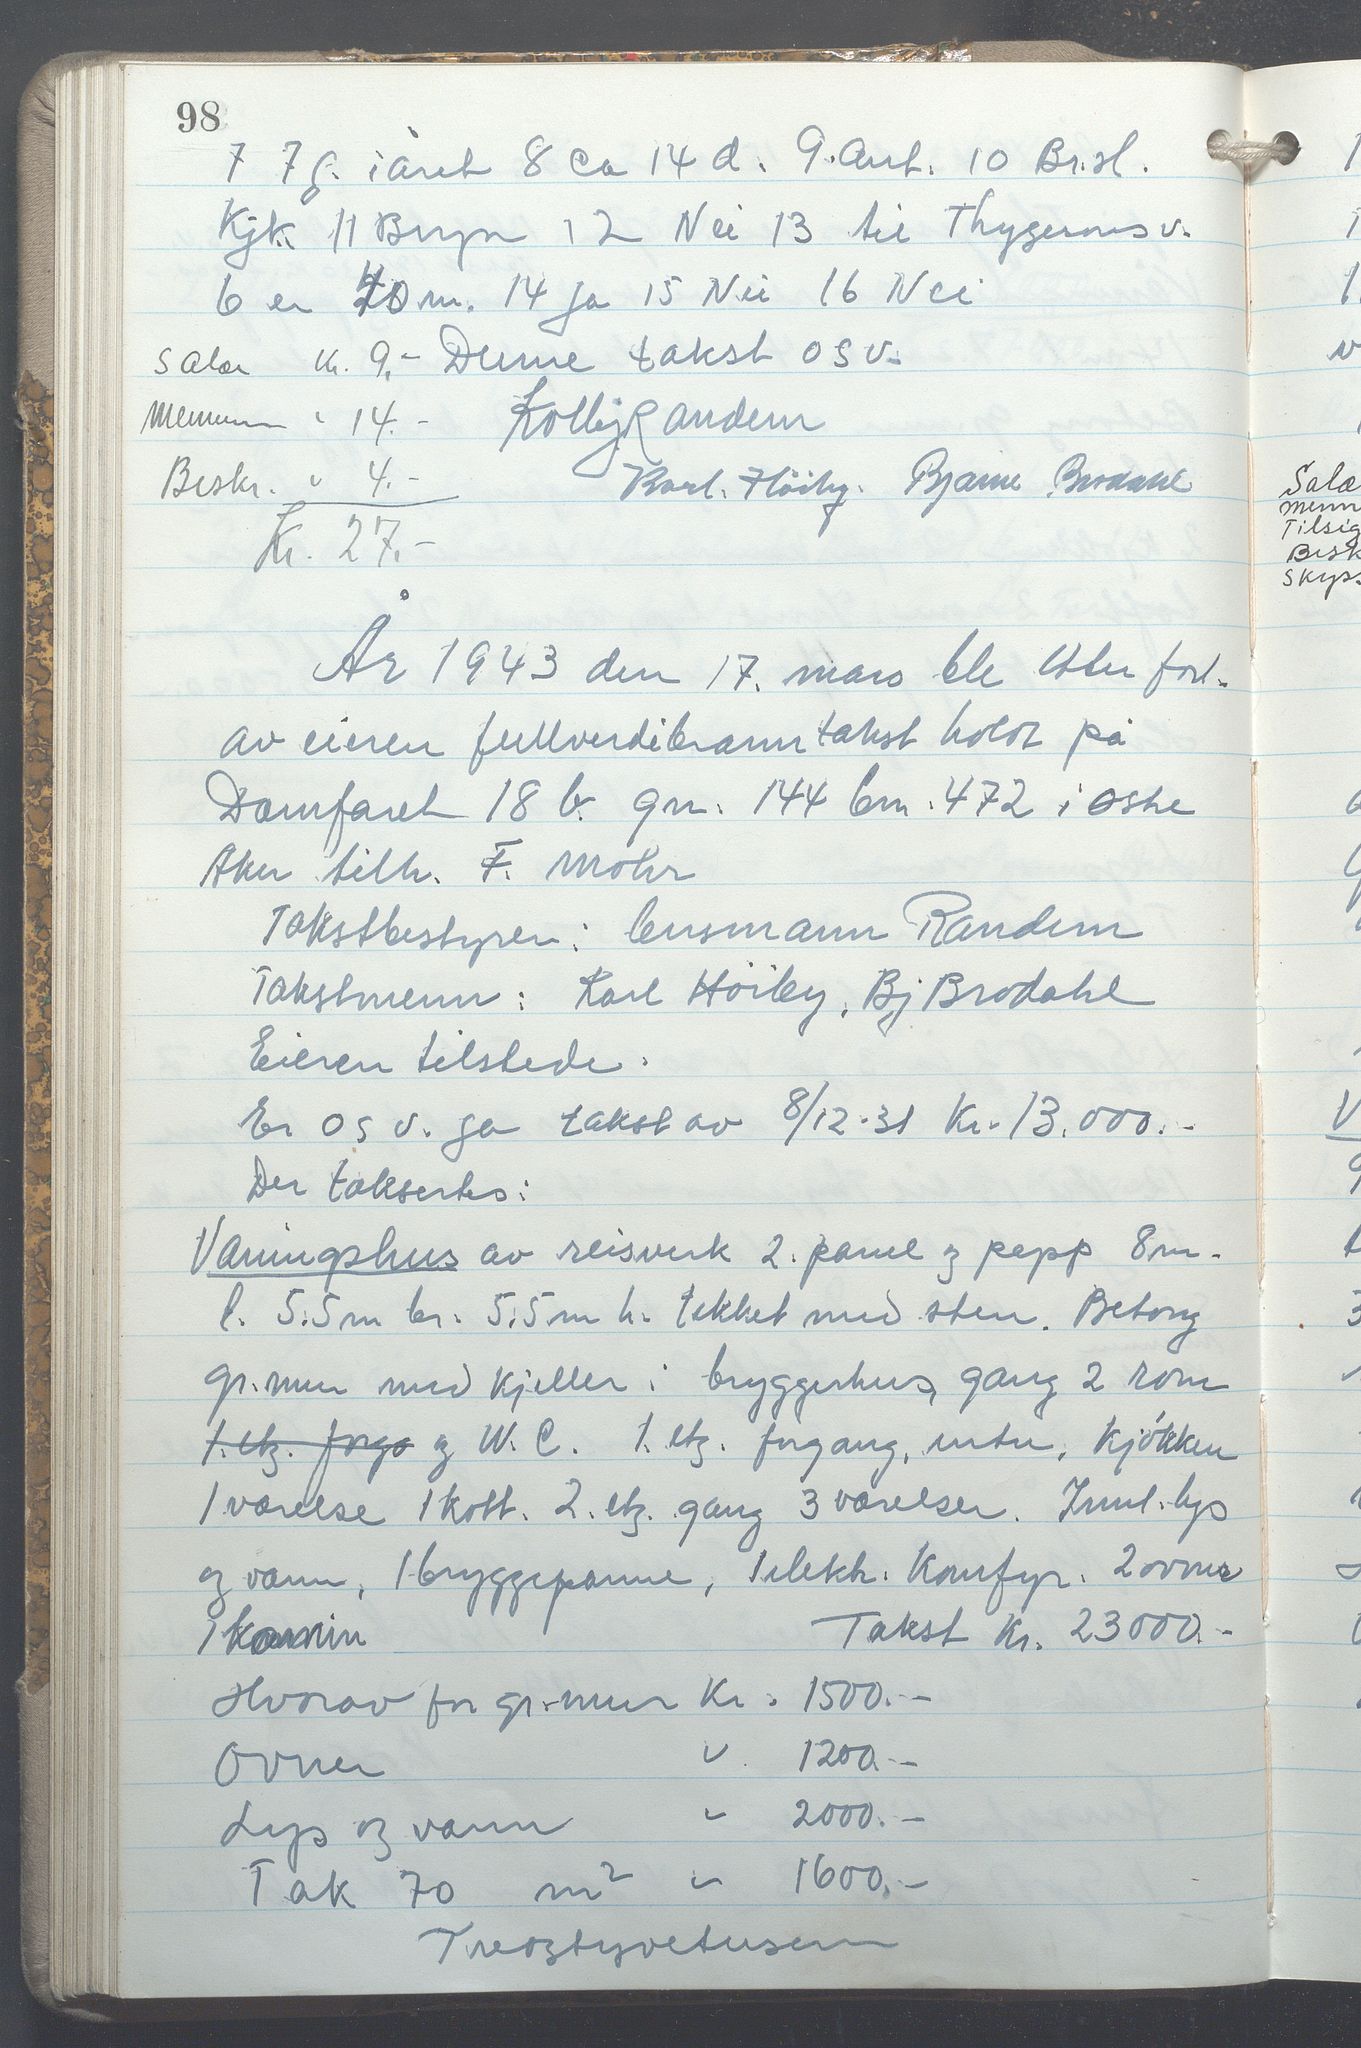 98
7 7 g. i året 8 ca 14 d. 9. Ant. 10 Br.sl.
Kjk. 11 Bryn 12 Nei 13 til Thygesons v.
6 er 40 m. 14 ja 15 Nei 16 Nei
Salær kr. 9.- Denne takst osv.
Mennene " 14.- Kolbj Randem
Beskr. " 4.- Karl. Høiby. Bjarne Brodahl
Kr. 27.-
År 1943 den 17. mars ble etter forl.
av eieren fullverdibranntakst holdt på
Damfaret 18 b. gn. 144 bn. 472 i Østre
Aker tilh. F. Mohr
Takstbestyrer: lensmann Randem
Takstmenn: Karl Høiby, Bj Brodahl
Eieren tilstede.
Er osv. ja takst av 8/12-31 Kr. 13.000.-
Der taksertes:
Våningshus av reisverk 2. panel og papp 8 m.
l. 5.5 m br. 5.5 m h. tekket med sten. Betong
gr.mur med kjeller i bryggerhus, gang 2 rom
1. etg. forga og W.C. 1. etg. forgang, entre, kjøkken
1 værelse 1 kott. 2. etg. gang 3 værelser. Innl. lys
og vann, 1 bryggepanne, 1 elektr. Komfyr. 2 ovner
1 kamin Takst Kr. 23000.-
Hvorav for gr.mur Kr. 1500.-
Ovner " 1200.-
Lys og vann " 2000.-
Tak 70 m² " 1600.-
Treogtyvetusen
Salæ
menn
Tilsig
Besk
Skyss